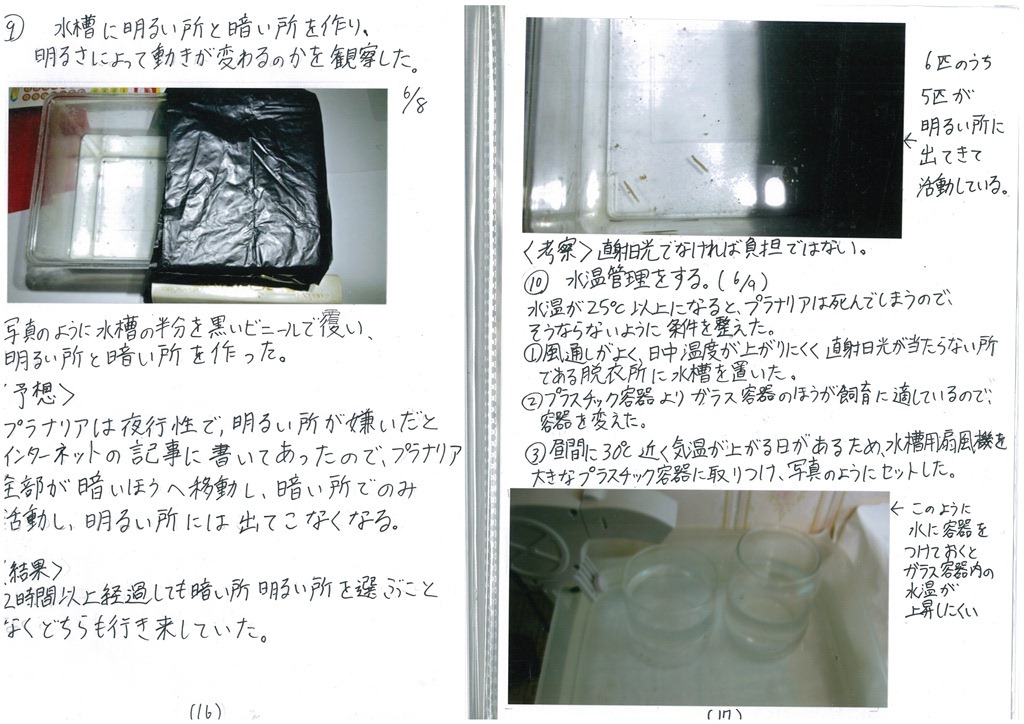 ⑨ 水槽に明るい所と暗い所を作り、
明るさによって動きが変わるのかを観察した。
6/8
写真のように水槽の半分を黒いビニールで覆い、
明るい所と暗い所を作った。
予想>
プラナリアは夜行性で、明るい所が嫌いだと
インターネットの記事に書いてあったので、プラナリア
全部が暗いほうへ移動し、暗い所でのみ
活動し、明るい所には出てこなくなる。
結果>
2時間以上経過しても暗い所明るい所を選ぶこと
なくどちらも行き来していた。
(16)
6匹のうち
5匹が
明るい所に
← 出てきて
活動している。
<考察>直射日光でなければ負担ではない。
⑩ 水温管理をする。(6/9)
水温が25℃以上になると、プラナリアは死んでしまうので、
そうならないように条件を整えた。
①風通しがよく、日中温度が上がりにくく直射日光が当たらない所
である脱衣所に水槽を置いた。
②プラスチック容器よりガラス容器のほうが飼育に適しているので、
容器を変えた。
③昼間に30℃近く気温が上がる日があるため、水槽用扇風機を
大きなプラスチック容器に取りつけ、写真のようにセットした。
← このように
水に容器を
つけておくと
ガラス容器内の
水温が
上昇しにくい
(17)